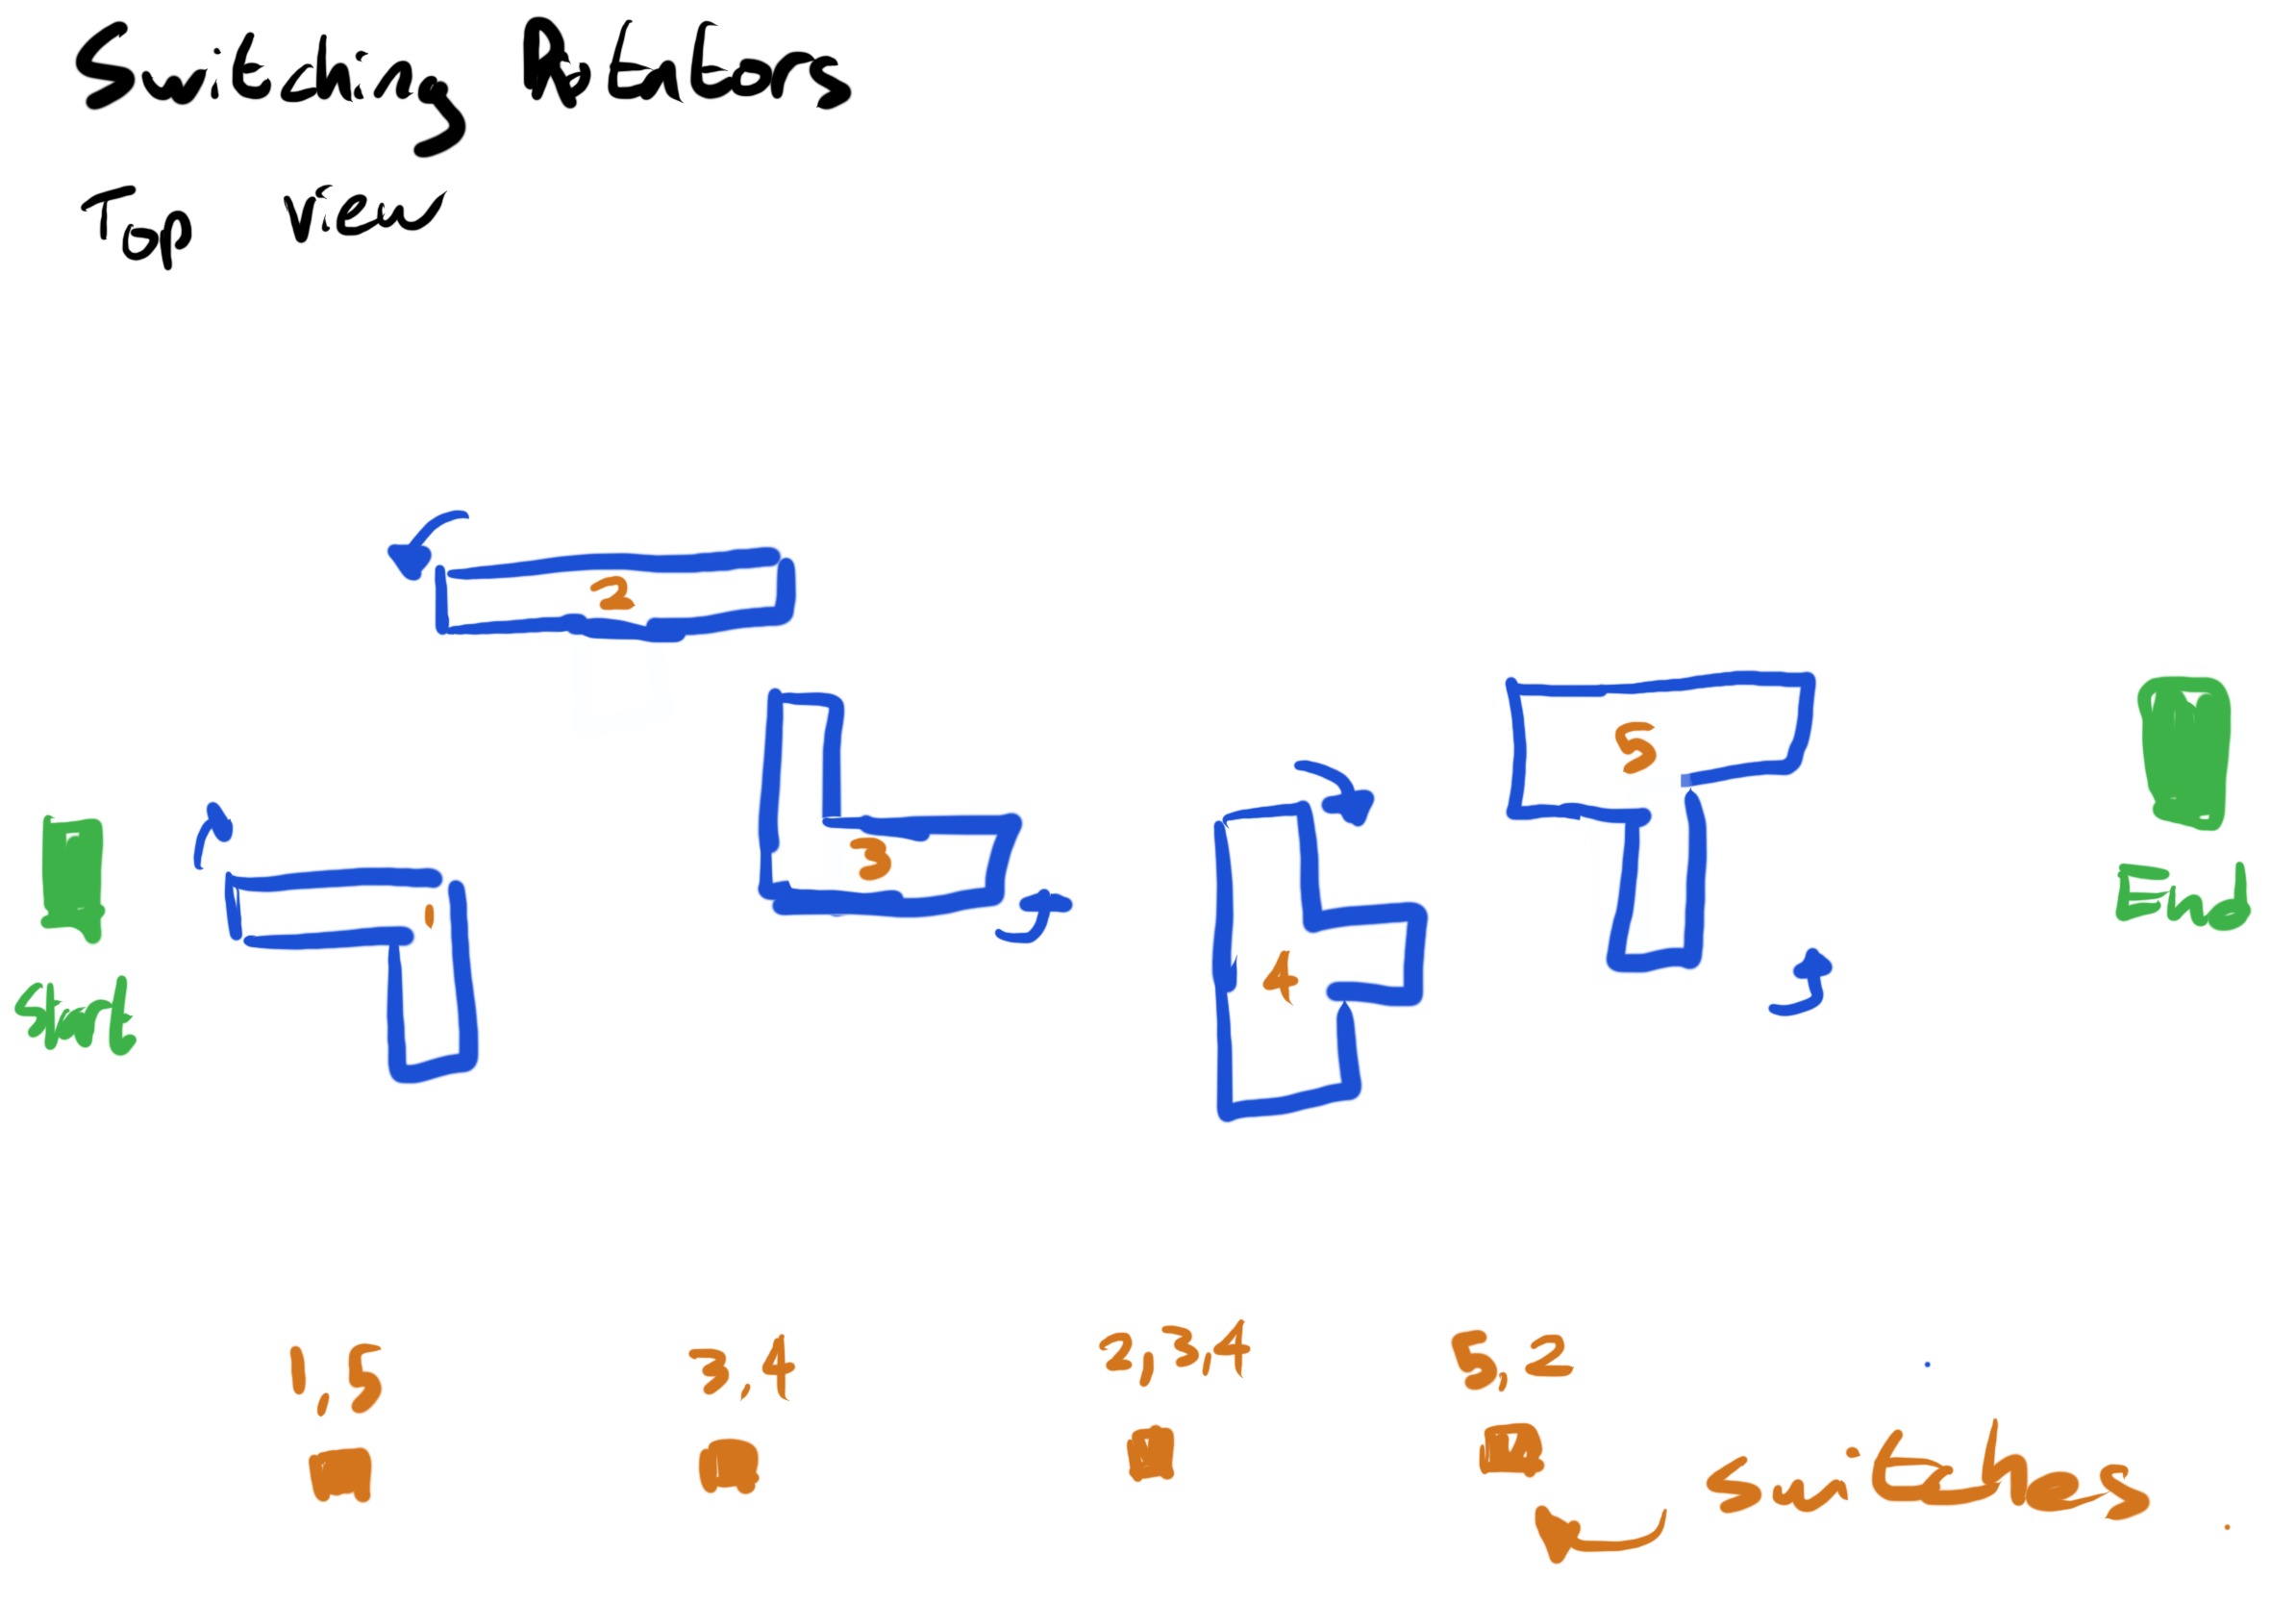 Switching Rotators
Top View
2
5
3
1
4
Start
End
1,5
3,4
2,3,4
5,2
switches